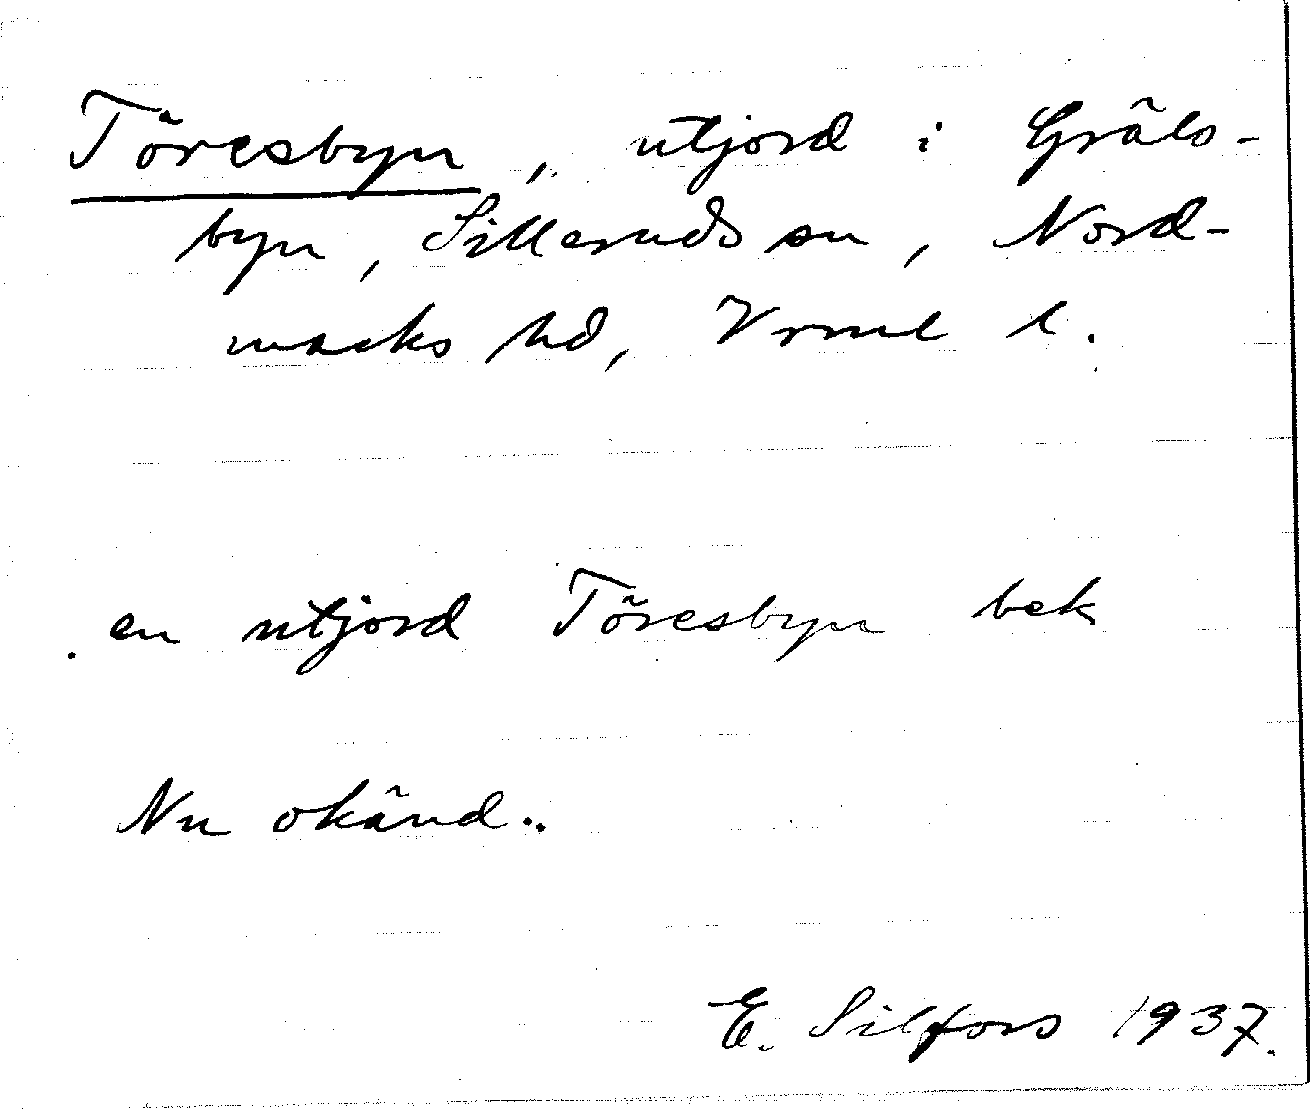 Töresbyn, utjord i Gräls-
byn, Silleruds sn, Nord-
marks hd, Vrml l.
en utjord Töresbyn bek
Nu okänd.
E. Silfors 1937.